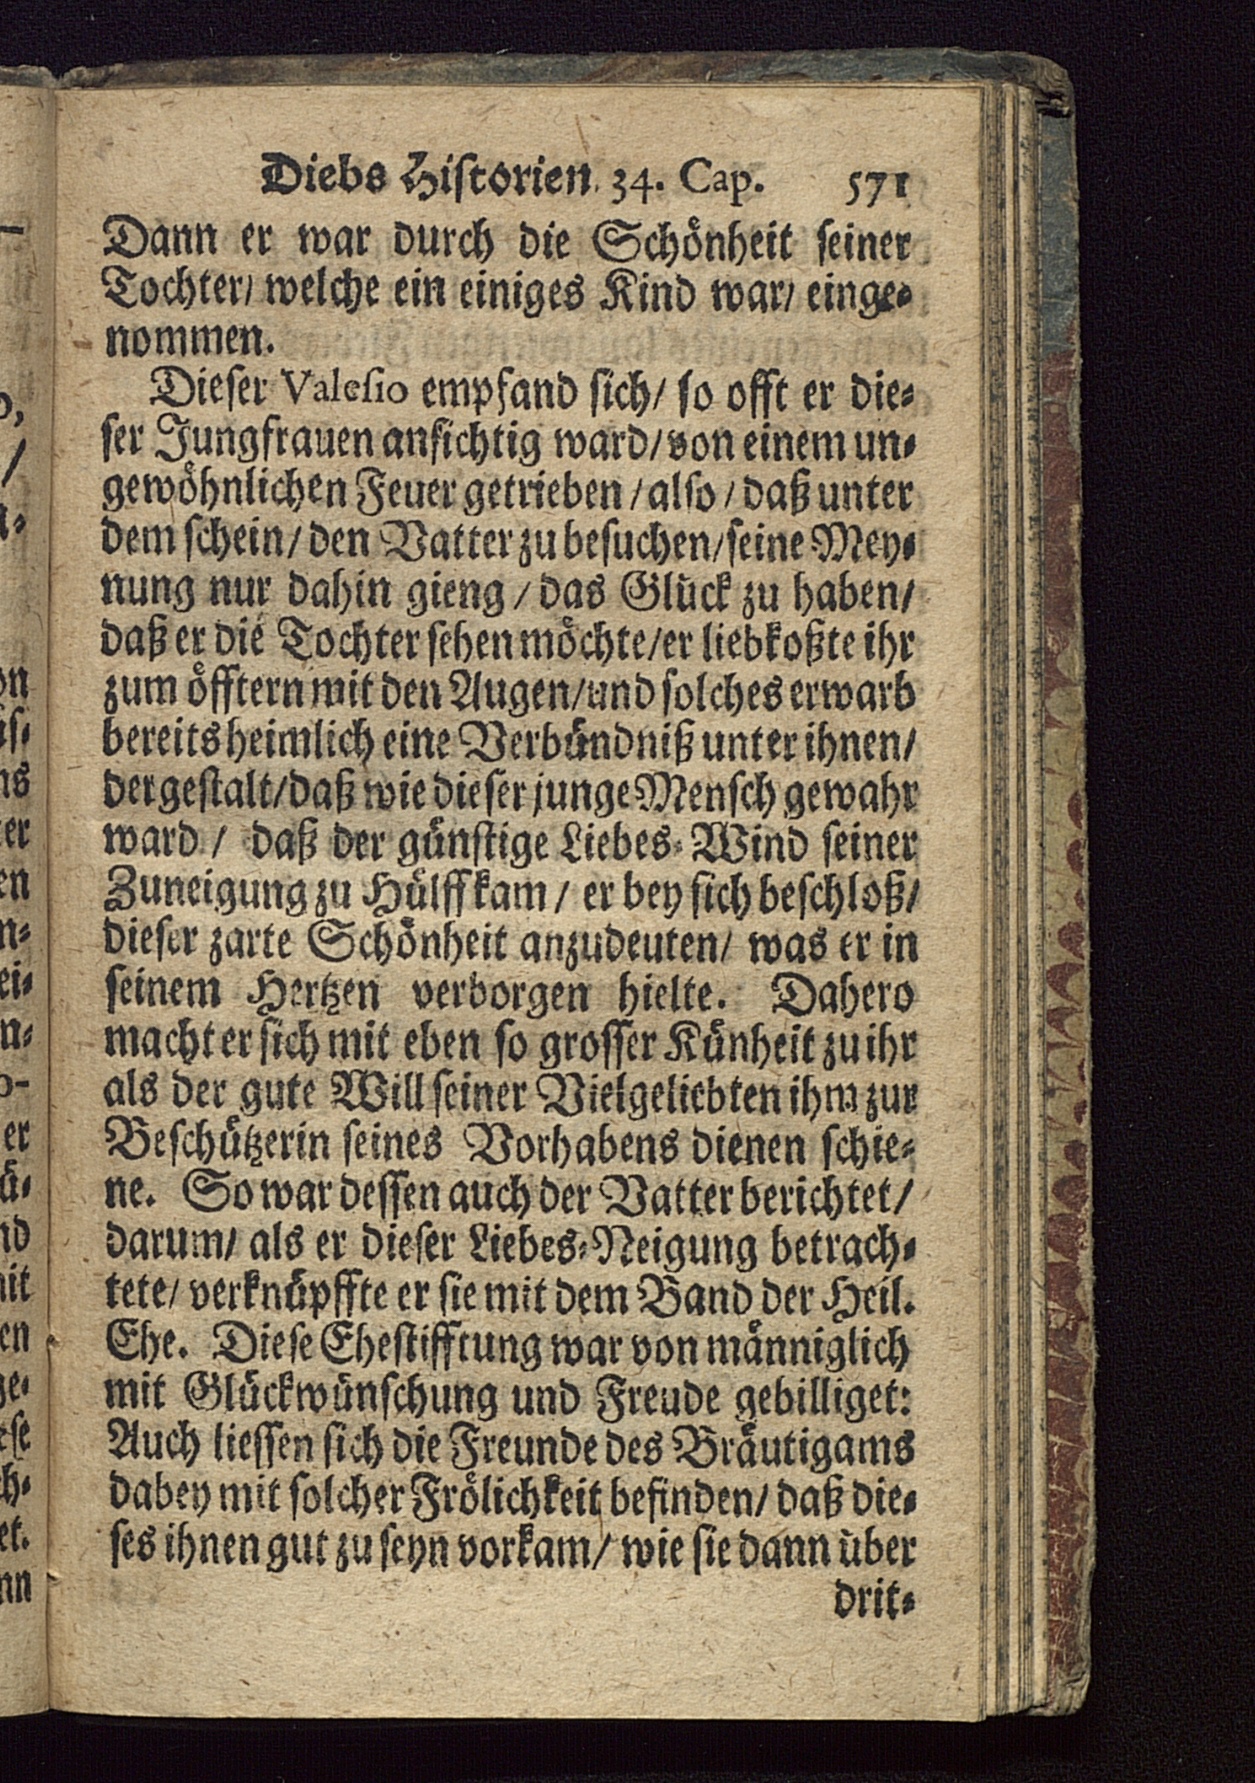 Diebs Historien. 34. Cap. 571
Dann er war durch die Schönheit seiner
Tochter/ welche ein einiges Kind war/ einge-
nommen.
Dieser Valesio empfand sich/ so offt er die-
ser Jungfrauen ansichtig ward/ von einem un-
gewöhnlichen Feuer getrieben / also / daß unter
dem schein/ den Vatter zu besuchen/ seine Mey-
nung nur dahin gieng / das Glück zu haben/
daß er die Tochter sehen möchte/ er liebkoßte ihr
zum öfftern mit den Augen/ und solches erwarb
bereits heimlich eine Verbündniß unter ihnen/
dergestalt/ daß wie dieser junge Mensch gewahr
ward / daß der günstige Liebes-Wind seiner
Zuneigung zu Hülff kam / er bey sich beschloß/
dieser zarte Schönheit anzudeuten/ was er in
seinem Hertzen verborgen hielte. Dahero
macht er sich mit eben so grosser Künheit zu ihr
als der gute Will seiner Vielgeliebten ihm zur
Beschützerin seines Vorhabens dienen schie-
ne. So war dessen auch der Vatter berichtet/
darum/ als er dieser Liebes-Neigung betrach-
tete/ verknüpffte er sie mit dem Band der Heil.
Ehe. Diese Ehestifftung war von männiglich
mit Glückwünschung und Freude gebilliget:
Auch liessen sich die Freunde des Bräutigams
dabey mit solcher Frölichkeit befinden/ daß die-
ses ihnen gut zu seyn vorkam/ wie sie dann über
drit-